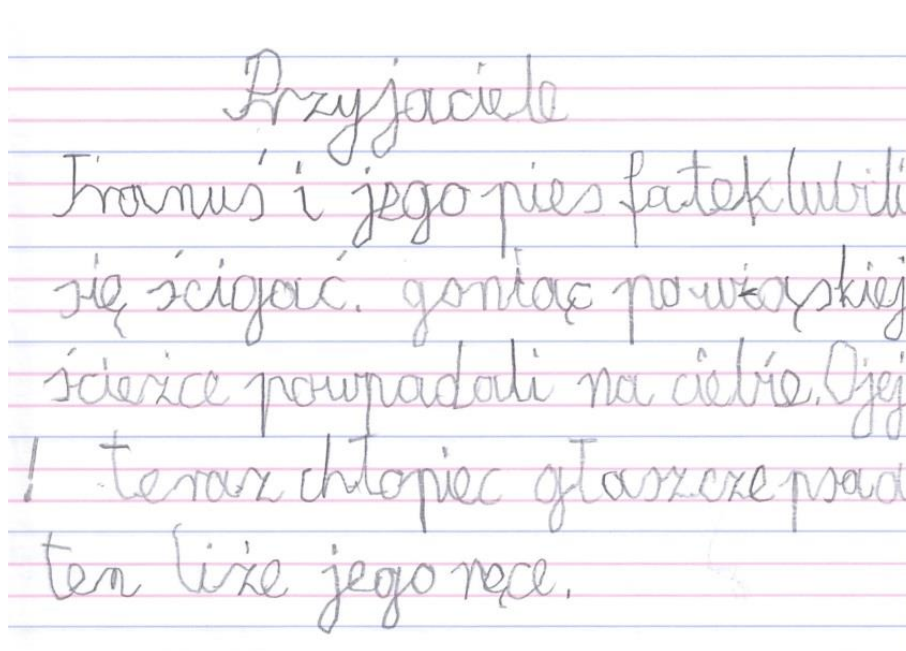 Przyjaciele
Franuś i jego pies fatek lubili
się ścigać. goniąc po wżąskiej
ścieżce powpadali na ciebie. Ojej
! teraz chłopiec głaszcze psa a
ten liże jego ręce.